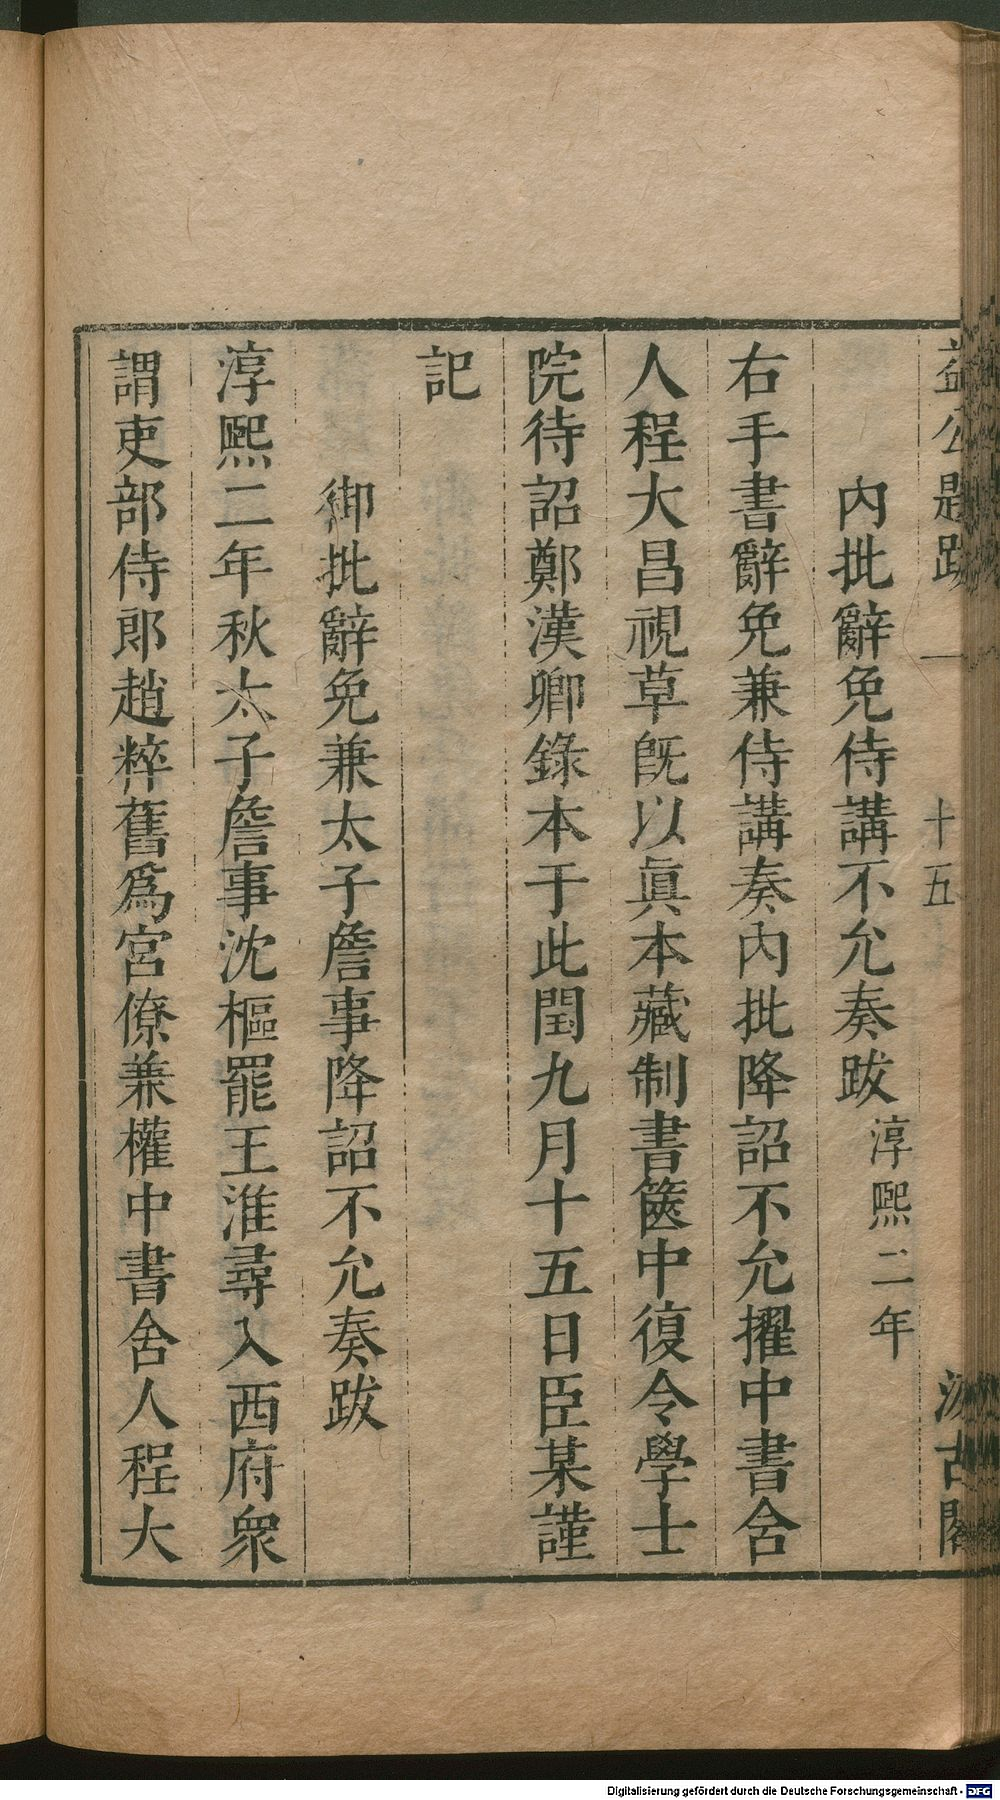 益公題跋 一 十五 汲古閣
內批辭免侍講不允奏跋 淳熙二年
右手書辭免兼侍講奏內批降詔不允擢中書舍
人程大昌視草旣以眞本藏制書篋中復令學士
院待詔鄭漢卿錄本于此閏九月十五日臣某謹
記
御批辭免兼太子詹事降詔不允奏跋
淳熙二年秋太子詹事沈樞罷王淮尋入西府衆
謂吏部侍郎趙粹舊爲宮僚兼權中書舍人程大
Digitalisierung gefördert durch die Deutsche Forschungsgemeinschaft - DFG